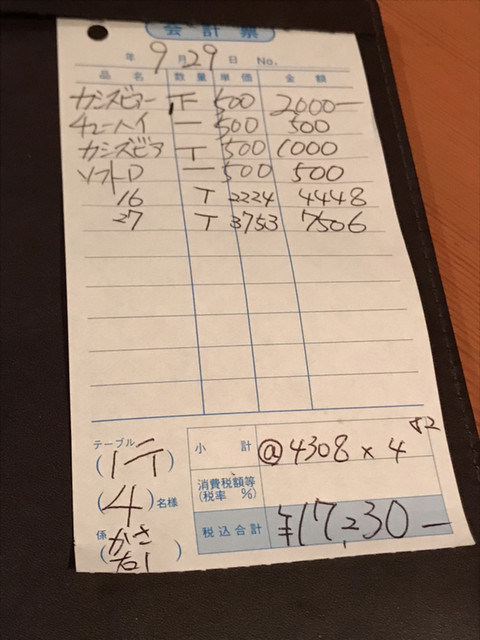 会計票
年 9月29日 No.
品名 数量 単価 金額
カシスビアー 下 500 2000-
チューハイ 一 500 500
カシスビア T 500 1000
ソフトD 一 500 500
16 T 2224 4448
27 T 3753 7506
テーブル
小計 @4308×4
(4)名様
消費税額等
(税率 %)
係
税込合計 ¥17,230-